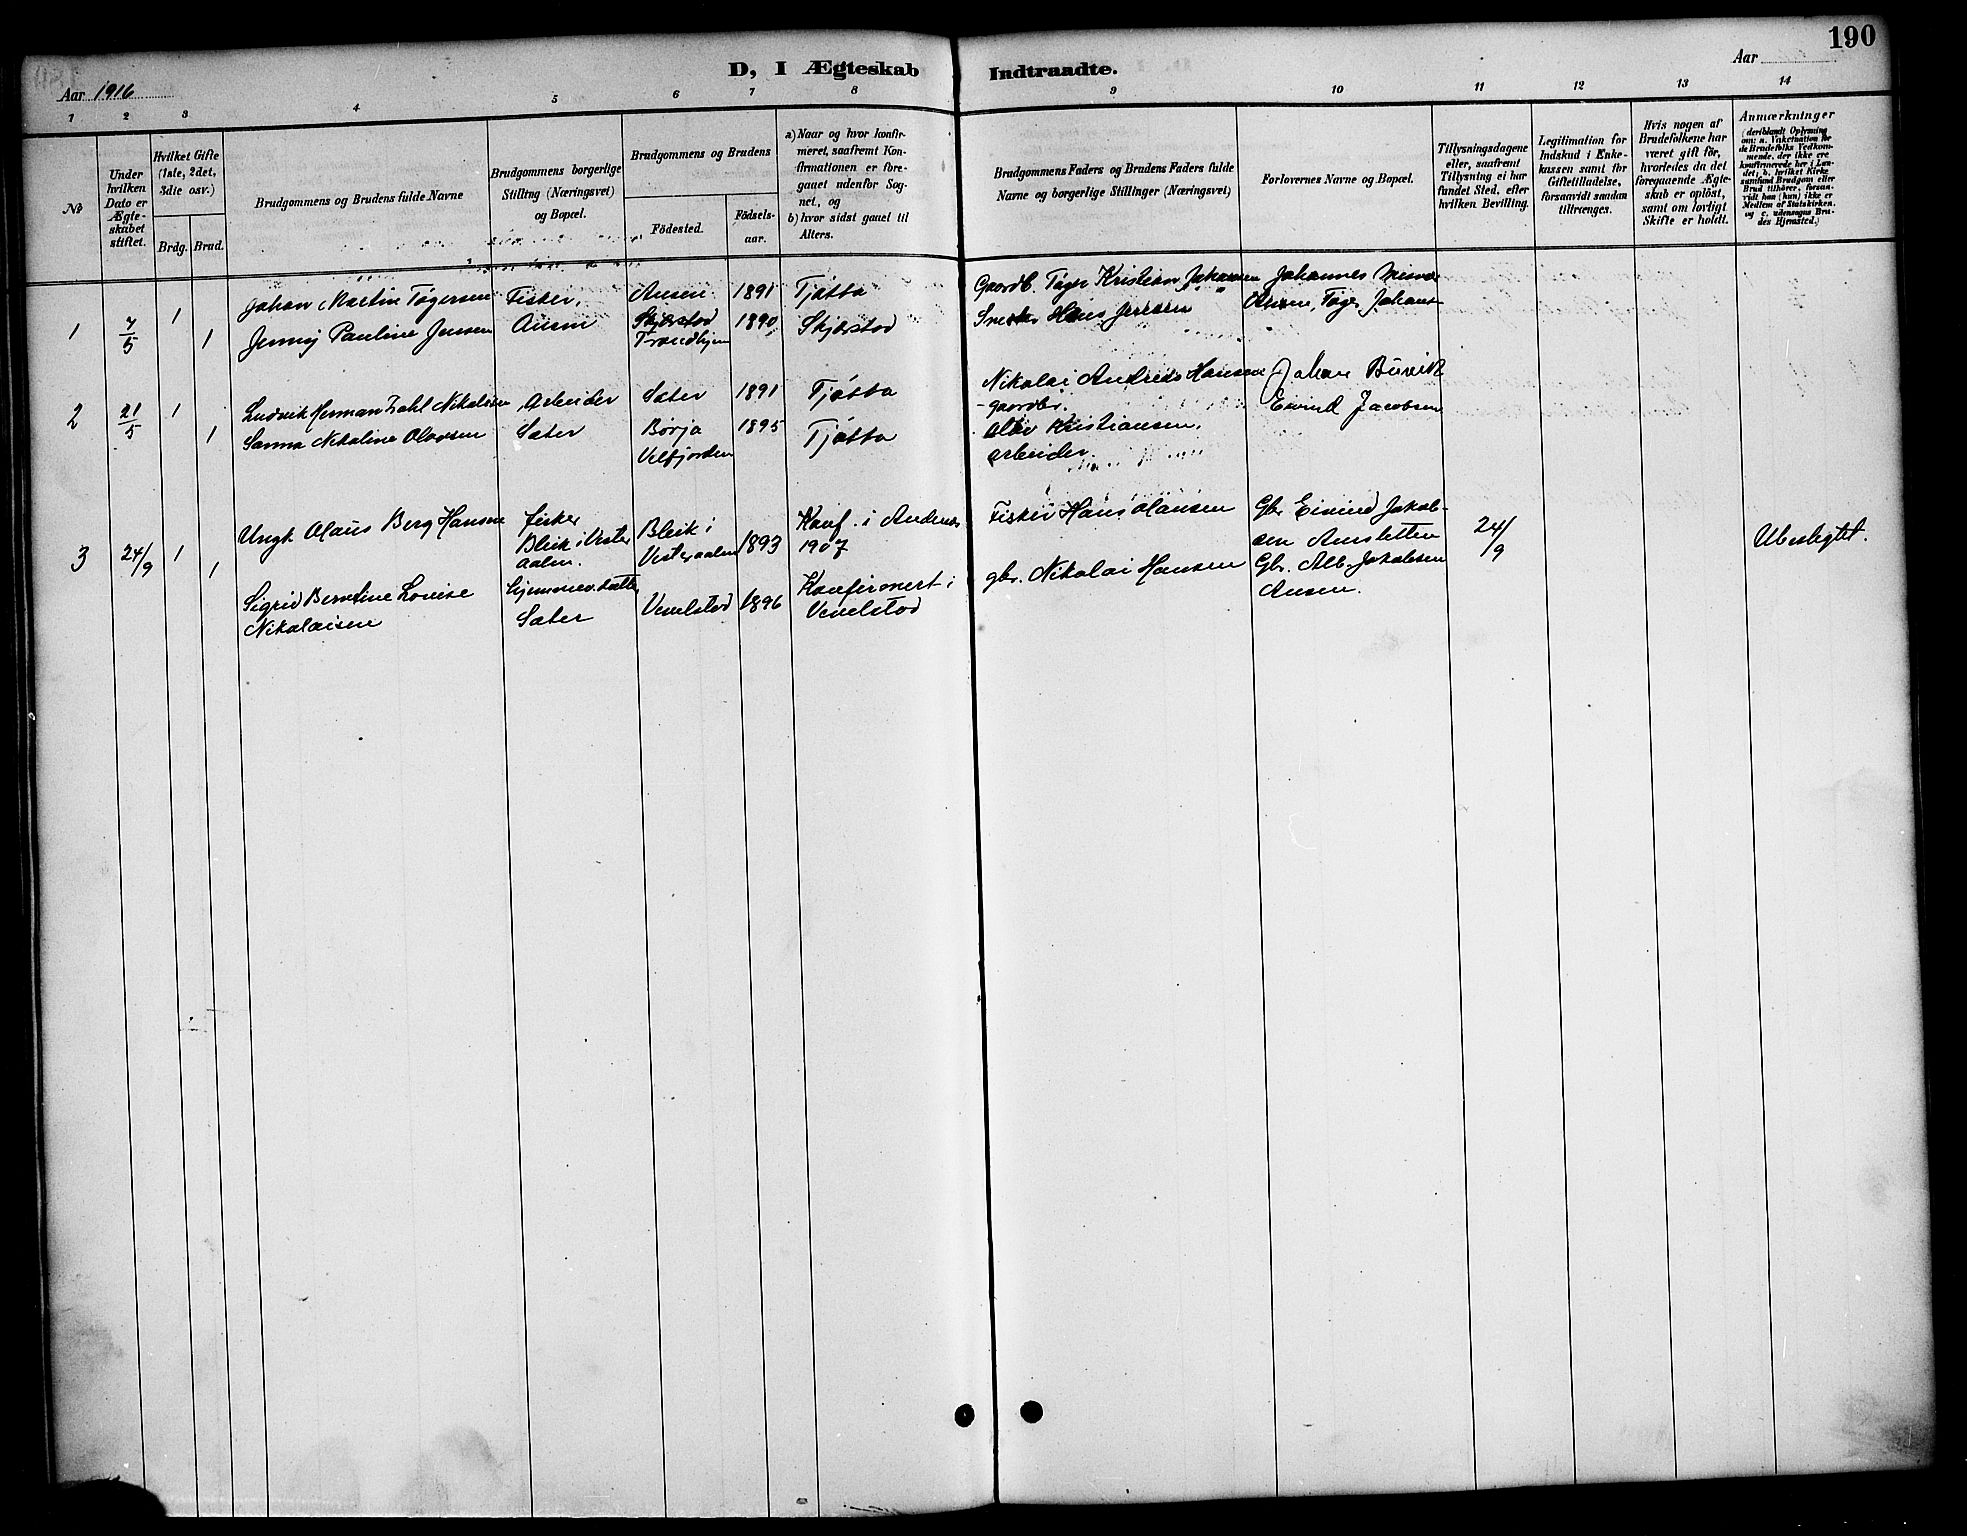 190
D, I Ægteskab Indtraadte.
Aar 1916
Aar
1 2 3 4 5 6 7 8 9 10 11 12 13 14
No
Under
hvilken
Dato er
Ægte-
skabet
stiftet.
Hvilket Gifte
(1ste, 2det,
3die osv.)
Brdg. Brud.
Brudgommens og Brudens fulde Navne
Brudgommens borgerlige
Stilling (Næringsvei)
og Bopæl.
Brudgommens og Brudens
Födested.
Födsels-
aar.
a) Naar og hvor konfir-
meret, saafremt Kon-
firmationen er fore-
gaaet udenfor Sog-
net, og
b) hvor sidst gaaet til
Alters.
Brudgommens Faders og Brudens Faders fulde
Navne og borgerlige Stillinger (Næringsvei)
Forlovernes Navne og Bopæl.
Tillysningsdagene
eller, saafremt
Tillysning ei har
fundet Sted, efter
hvilken Bevilling.
Legitimation for
Indskud i Enke-
kassen samt for
Giftetilladelse,
forsaavidt saadan
tiltrænges.
Hvis nogen af
Brudefolkene har
været gift för,
hvorledes da det
foregaaende Ægte-
skab er oplöst,
samt om lovligt
Skifte er holdt.
Anmærkninger
(deriblandt Oplysning
om: a. Vakcination for
de Brudefolks Vedkom-
mende, der ikke ere
konfirmerede her i Lan-
det; b. hvilket Kirke-
samfund Brudgom eller
Brud tilhörer, forsaa-
vidt han (hun) ikke er
Medlem af Statskirken,
og c. udensogns Bru-
des Hjemsted.)
1 7/5 1 Johan Martin Tøgersen Fisker, Ausen 1891 Tjøtta Gaardb. Tøger Kristian Johansen Johannes
1 Jenny Pauline Jensen Ausen Skjerstad 1890 Skjerstad Hans Jensen Tøger
Trondhjem
2 21/5 1 Ludvik Herman Zahl Nikolaisen Arbeider Sæter 1891 Tjøtta Nikolai Andreas Hansen Johan Buvik
gaardbr. Eivind Jacobsen
1 Sanna Nikoline Olavsen Sæter Børja 1895 Tjøtta Olav Kristiansen,
Velfjorden arbeider
3 24/9 1 Ungk. Olaus Berg Hansen fisker Bleik i 1893 Konf. i Andenes Fisker Hans Hansen Gbr. Eivind Jakob-
Bleik i Vester Vesteraalen 1907 sen Ausletten 24/9 Ubeslegtet.
aalen.
1 Sigrid Berntine Lovise Hjemmev. datter Vevelstad 1896 Konfirmert i gbr. Nikolai Hansen Gbr. Alb. Jakobsen
Nikolaisen Sæter Vevelstad Ausen.